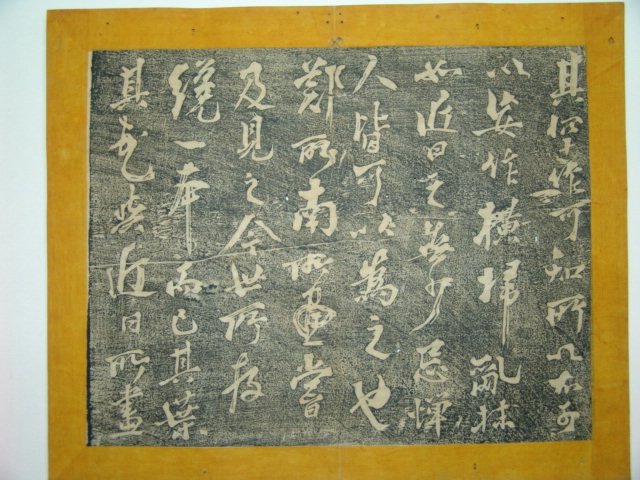 其罕作可知所以不可
以妄作橫掃亂抹
如近日之無少忌憚
人皆可以爲之也
鄭所南所畫嘗
及見之今世所存
纔一本而已其葉
其花與近日所畫